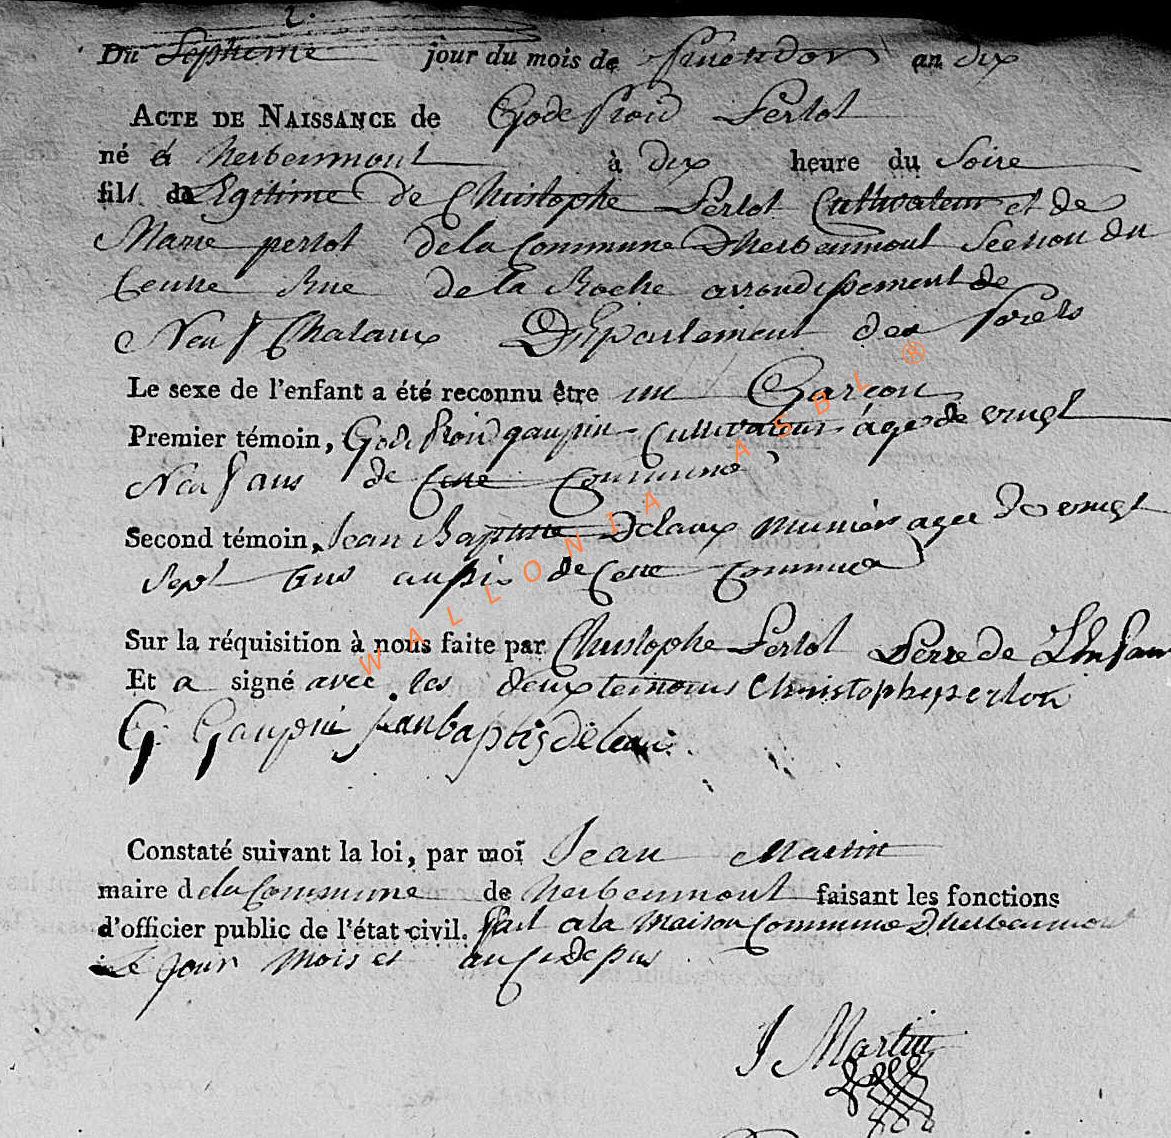 2.
Du Septieme jour du mois de fructidor an dix
ACTE DE NAISSANCE de Godefroid Perlot
né à herbeumont à dix heure du Soire
fils de Legitime de Christophe Perlot Cultivateur et de
Marie perlot de la Commune Dherbeumont Section du
Centre Rue de la Roche arrondissement de
Neuf Chataux Département des forêts
Le sexe de l'enfant a été reconnu être un Garçon
Premier témoin, Godefroid gaupin Cultivateur âgé de vingt
Neuf ans de Cette Commune
Second témoin, Jean Baptiste Delaux Munier agee de vingt
Sept ans aussi de Cette Commune
Sur la réquisition à nous faite par Christophe Perlot Perre de Lenfant
Et a signé avec les deux temoins Christophe perlot
G. Gaupin jean baptis
Constaté suivant la loi, par moi Jean Martin
maire de la Commune de herbeumont faisant les fonctions
d'officier public de l'état civil. fait a la Maison Commune Dherbeumont
Le Jour Mois et an
J Martin
WALLONIA ASBL ®